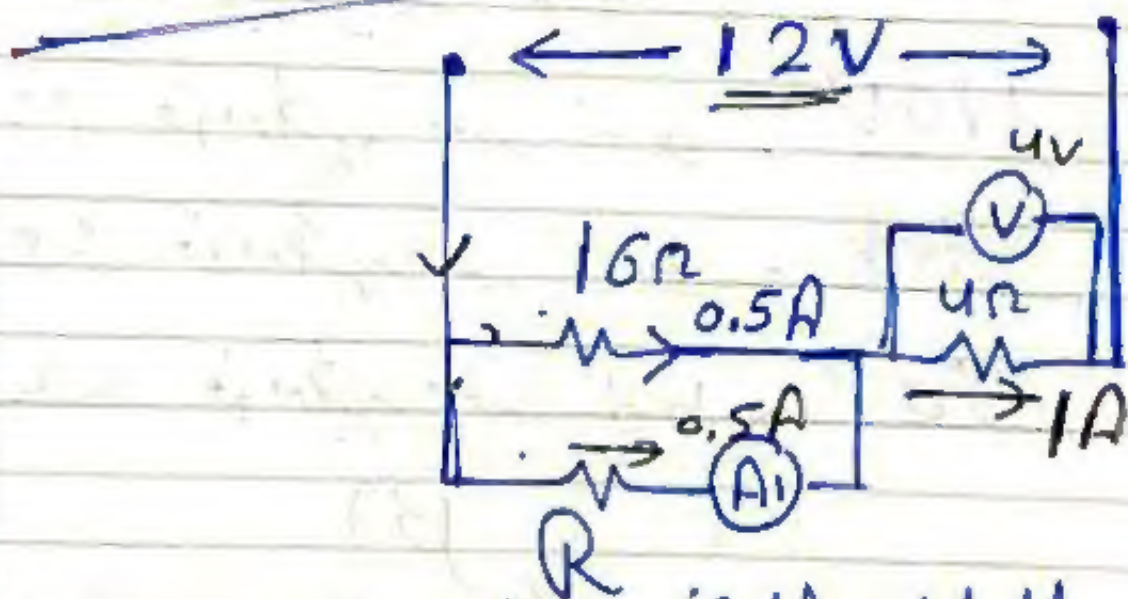 12V
4V
V
16Ω 0.5A 4Ω
1A
0.5A
A1
R